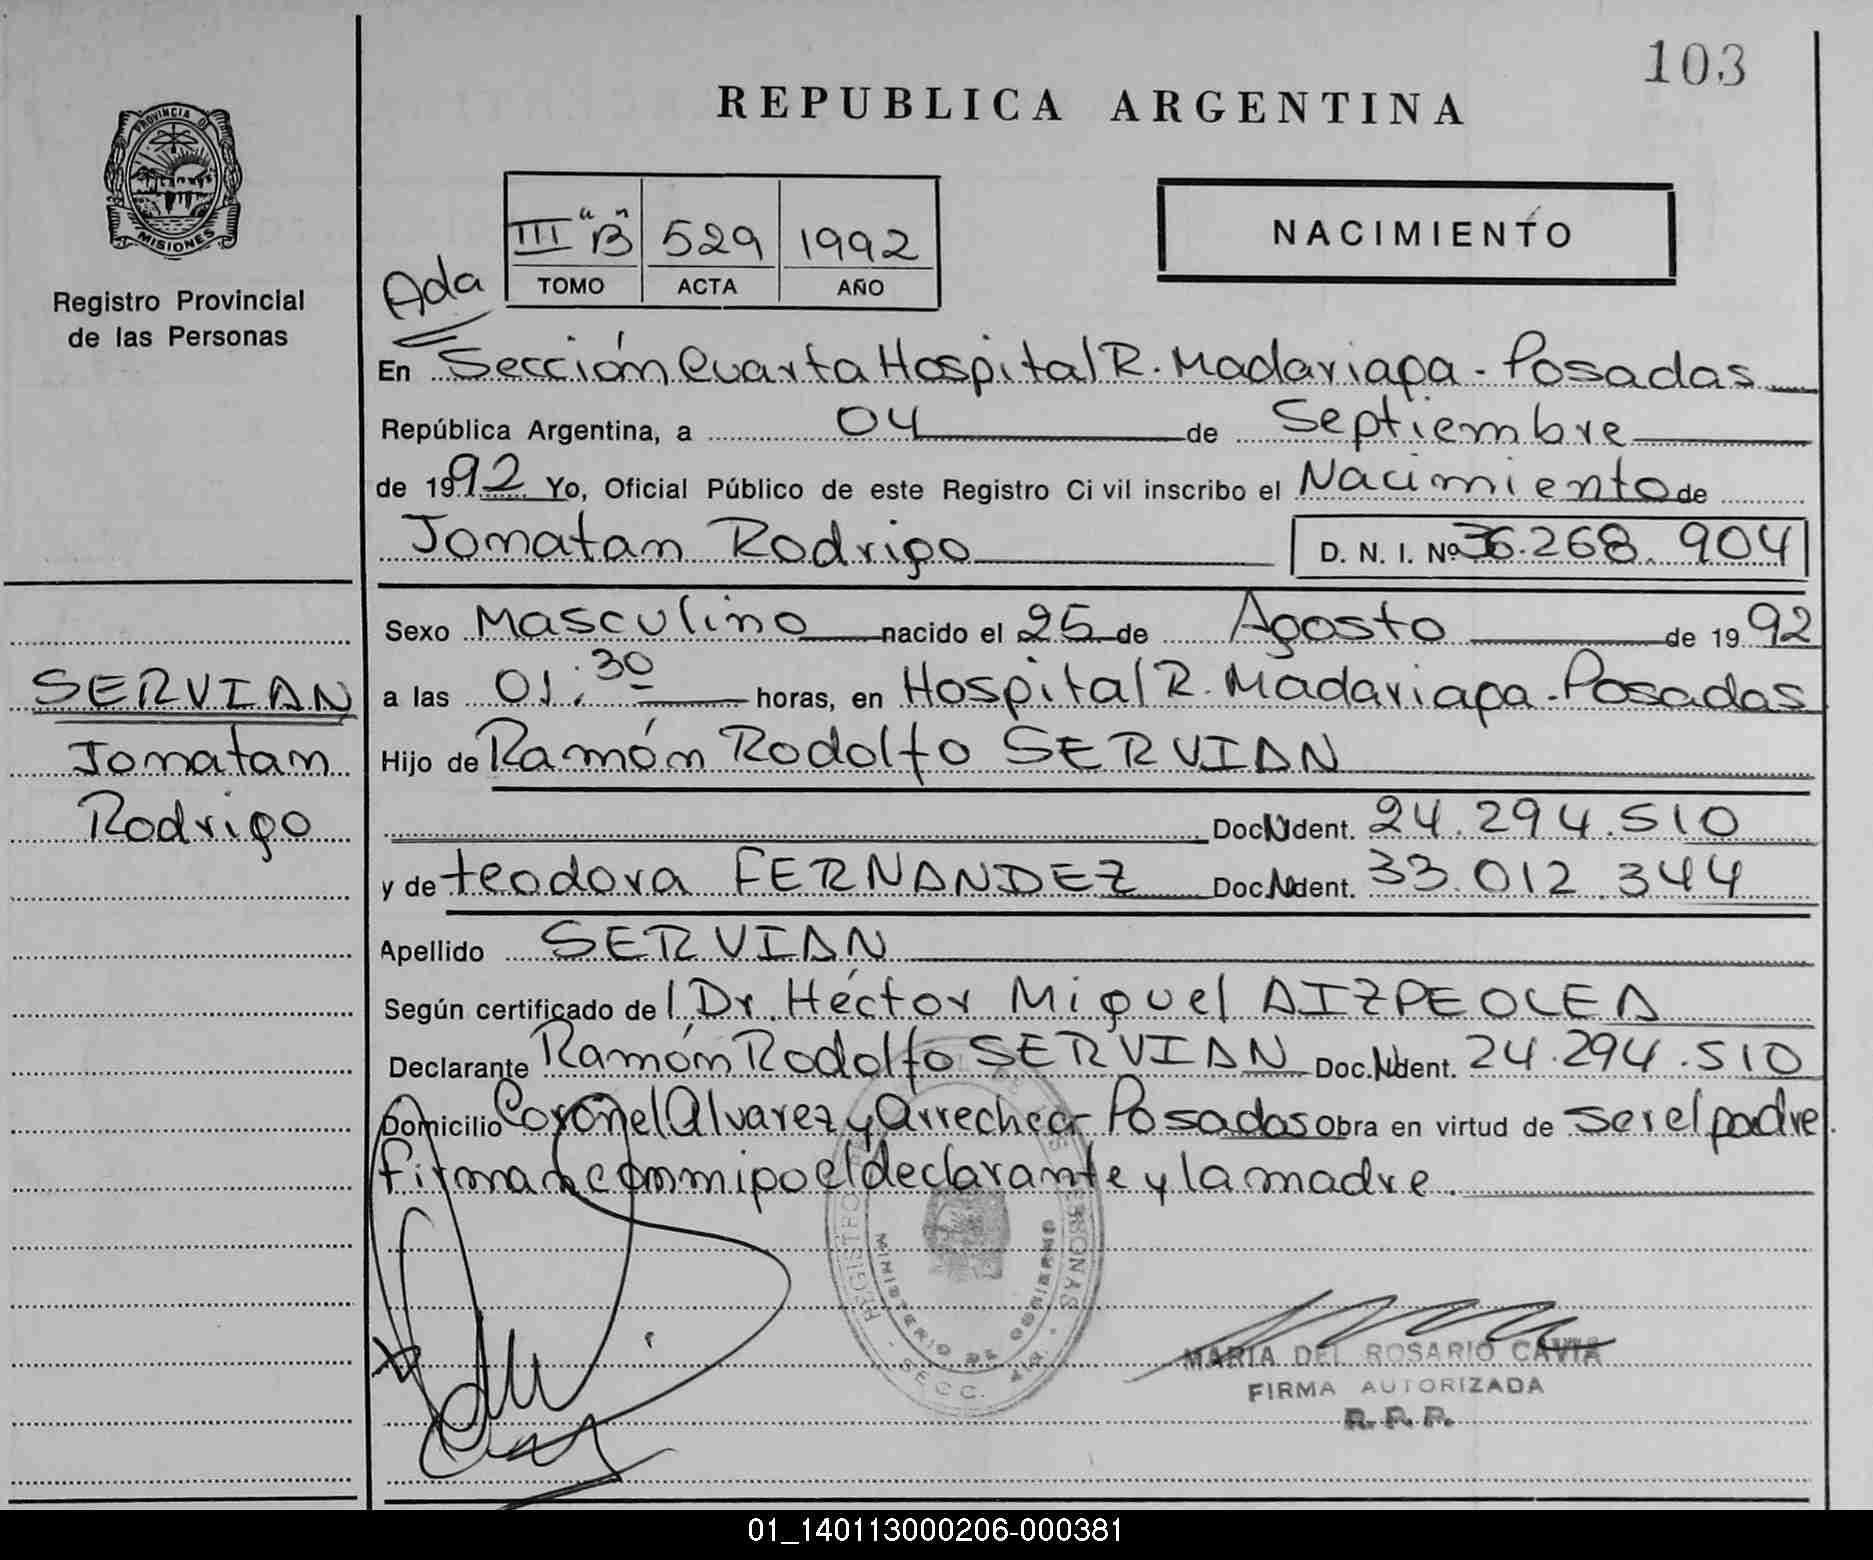 103
REPUBLICA ARGENTINA
PROVINCIA DE
MISIONES
Registro Provincial
de las Personas
III "B" 529 1992
TOMO ACTA AÑO
NACIMIENTO
Ada
En Sección Cuarta Hospital R. Madariaga - Posadas
República Argentina, a 04 de Septiembre
de 1992 Yo, Oficial Público de este Registro Civil inscribo el Nacimiento de
Jonatan Rodrigo D. N. I. Nº 36.268.904
Sexo Masculino nacido el 25 de Agosto de 1992
a las 01:30 horas, en Hospital R. Madariaga - Posadas
Hijo de Ramón Rodolfo SERVIAN
Doc. N Ident. 24.294.510
y de teodora FERNANDEZ Doc. N Ident. 33.012.344
Apellido SERVIAN
Según certificado del Dr. Héctor Miguel AIZPEOLEA
Declarante Ramón Rodolfo SERVIAN Doc. N Ident. 24.294.510
Domicilio Coronel Alvarez y Arrechea - Posadas Obra en virtud de ser el padre.
firman conmigo el declarante y la madre.
SERVIAN
Jonatan
Rodrigo
REGISTRO DE LAS PERSONAS
MINISTERIO DE GOBIERNO
SECC.
MARIA DEL ROSARIO CAVIA
FIRMA AUTORIZADA
R. P. P.
01_140113000206-000381